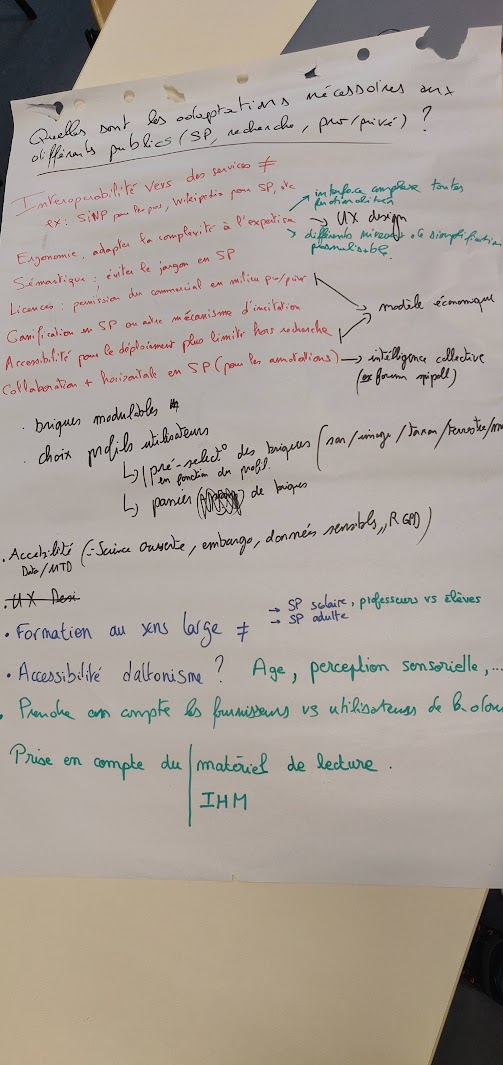 Quelles sont les adaptations nécessaires aux
différents publics (SP, recherche, pro/privé) ?
Interopérabilité vers des services ≠
ex: SINP pour les pros, Wikipedia pour SP, etc
→ interface complexe toutes
fonctionalités
Ergonomie, adapter la complexité à l'expertise
→ UX design
→ différents niveaux de simplification
Sémantique : éviter le jargon en SP
Licences : permission du commercial en milieu pro/privé
→ modèle économique
Gamification en SP ou autre mécanisme d'incitation
Accessibilité pour le déploiement plus limité hors recherche
Collaboration + horizontale en SP (pour les annotations) → intelligence collective
(ex forum spipoll)
• briques modulables
• choix profils utilisateurs
↳ pré-select° des briques (son/image/taxon/terrestre/
en fonction du profil.
↳ panier de briques
• Accebilité (- Science Ouverte, embargo, données sensibls,, RGPD)
Data/MTD
• UX Desi
• Formation au sens large ≠ → SP scolaire, professeurs vs élèves
→ SP adulte
• Accessibilité daltonisme ? Age, perception sensorielle,...
• Prendre en compte les fournisseurs vs utilisateurs de
Prise en compte du | matériel de lecture.
IHM